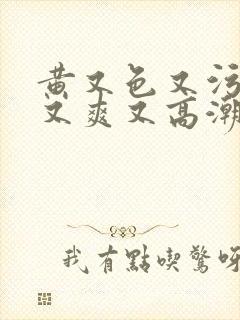 黄又色又污
又爽又高潮
我有點喫驚呀